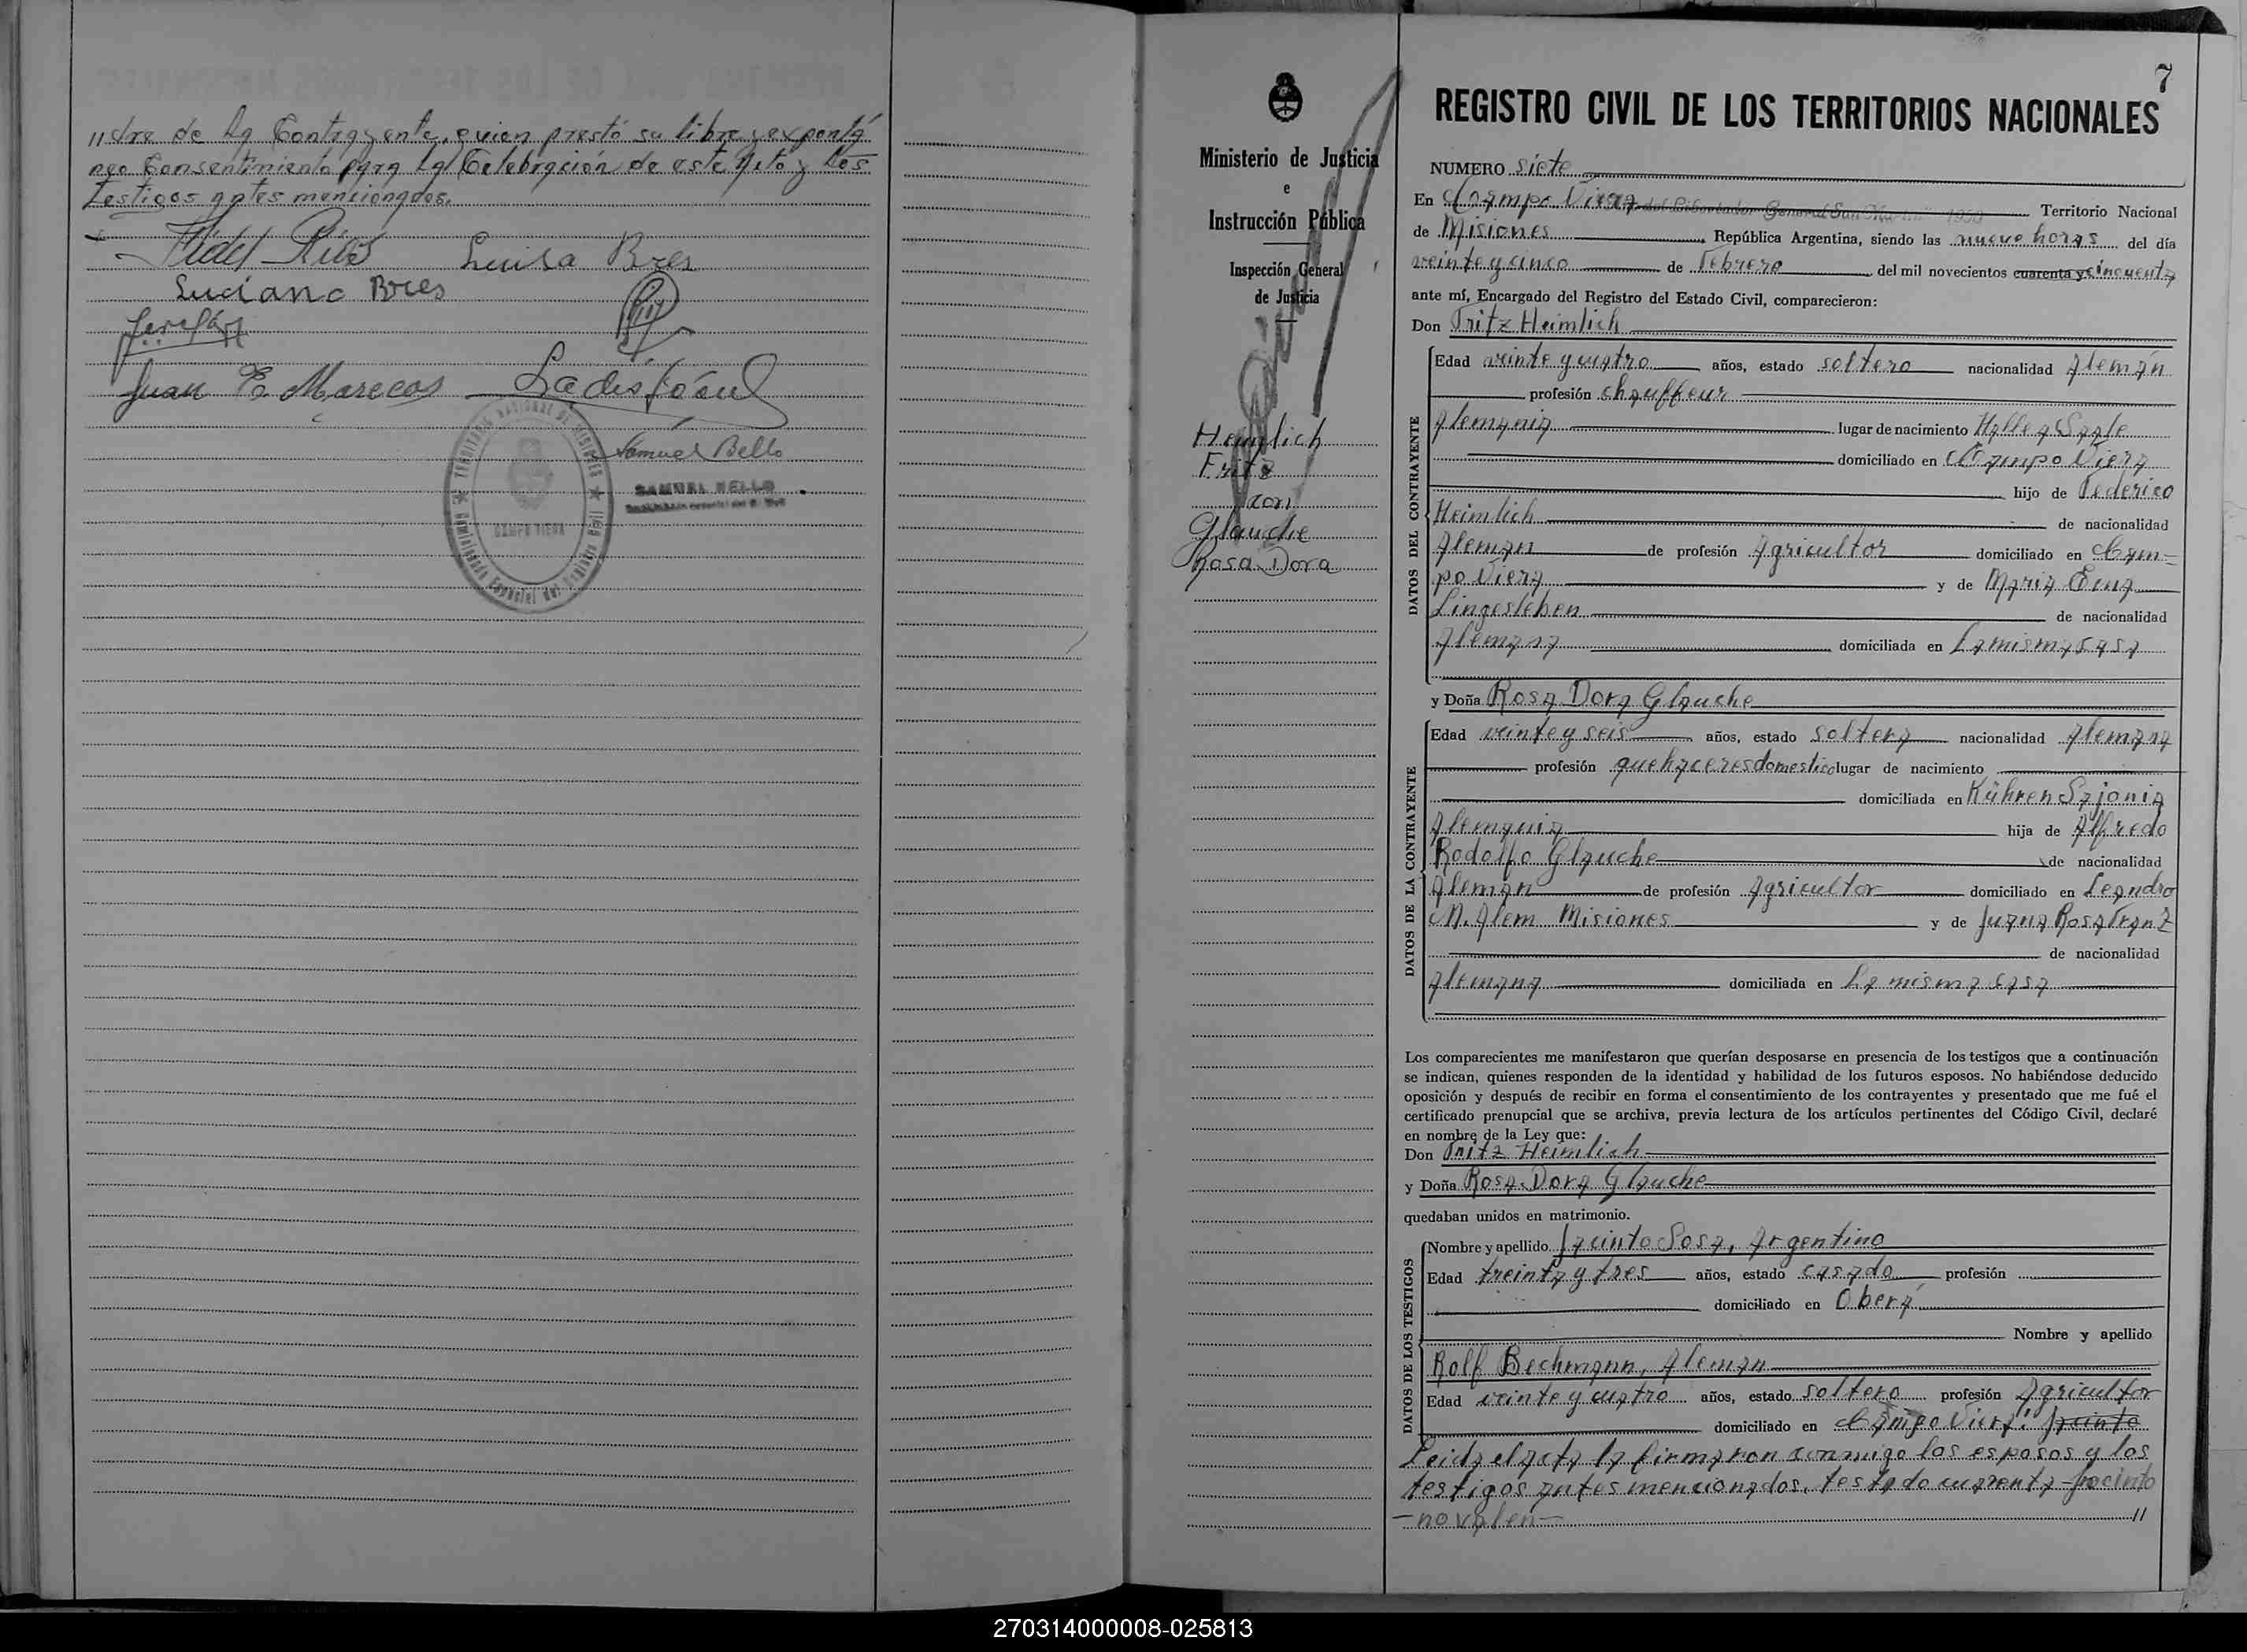 //dre de la Contrayente, quien prestó su libre y expontá
neo Consentimiento para la Celebración de este Acto y los
testigos antes mencionados.
Fidel Luisa Bres
Luciano Bres
Juan E. Marecos
TERRITORIO NACIONAL DE MISIONES
CAMPO VIERA
Samuel Bello
SAMUEL BELLO
Ministerio de Justicia
e
Instrucción Pública
Inspección General
de Justicia
Heimlich
Fritz
con
Glauche
Rosa Dora
7
REGISTRO CIVIL DE LOS TERRITORIOS NACIONALES
NUMERO siete
En Campo Viera del Libertador General San Martín 1950 Territorio Nacional
de Misiones, República Argentina, siendo las nueve horas del día
veinte y cinco de Febrero del mil novecientos cuarenta y cincuenta
ante mí, Encargado del Registro del Estado Civil, comparecieron:
Don Fritz Heimlich
DATOS DEL CONTRAYENTE
Edad veinte y cuatro años, estado soltero nacionalidad Alemán
profesión chauffeur
Alemania lugar de nacimiento Halle a Saale
domiciliado en Campo Viera
hijo de Federico
Heimlich de nacionalidad
Alemán de profesión Agricultor domiciliado en Cam-
po Viera y de Maria Ema
Lingesleben de nacionalidad
Alemana domiciliada en La misma casa
y Doña Rosa Dora Glauche
DATOS DE LA CONTRAYENTE
Edad veinte y seis años, estado soltera nacionalidad Alemana
profesión quehaceres domestico lugar de nacimiento
domiciliada en Kühren Sajonia
Alemania hija de Alfredo
Rodolfo Glauche de nacionalidad
Alemán de profesión Agricultor domiciliado en Leandro
N. Alem Misiones y de Juana Rosa Franz
de nacionalidad
Alemana domiciliada en La misma casa
Los comparecientes me manifestaron que querían desposarse en presencia de los testigos que a continuación
se indican, quienes responden de la identidad y habilidad de los futuros esposos. No habiéndose deducido
oposición y después de recibir en forma el consentimiento de los contrayentes y presentado que me fué el
certificado prenupcial que se archiva, previa lectura de los artículos pertinentes del Código Civil, declaré
en nombre de la Ley que:
Don Fritz Heimlich
y Doña Rosa Dora Glauche
quedaban unidos en matrimonio.
DATOS DE LOS TESTIGOS
Nombre y apellido Jacinto Sosa, Argentino
Edad treinta y tres años, estado casado profesión
domiciliado en Oberá
Nombre y apellido
Rolf Bechmann, Alemán
Edad veinte y cuatro años, estado soltero profesión Agricultor
domiciliado en Campo Viera. Jacinto
Leida el acta la firmaron conmigo los esposos y los
testigos antes mencionados. testado cuarenta - Jacinto
- no valen - //
270314000008-025813